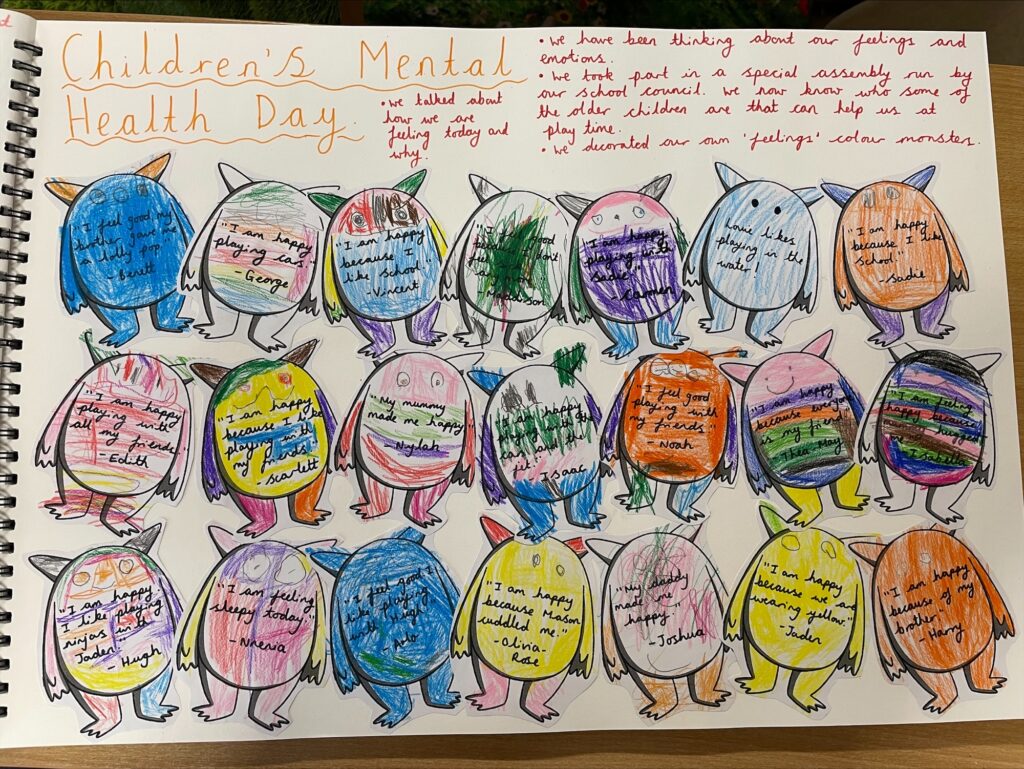 Children's Mental
Health Day.
• we talked about
how we are
feeling today and
why.
• we have been thinking about our feelings and
emotions.
• we took part in a special assembly run by
our school council. We now know who some of
the older children are that can help us at
play time.
• we decorated our own 'feelings' colour monsters.
"I feel good my
brother gave me
a lolly pop."
"I am happy
playing cars"
- George
"I am happy
because I
like school"
- Vincent
good
"I am happy
playing with
Sadie"
Carmen
Love likes
playing in the
water!
"I am happy
because I like
school."
- Sadie
"I am happy
playing with
all my friends"
- Edith
"I am happy
because I like
playing with
my friends"
- Scarlett
"My mummy
made me happy"
- Nylah
I am happy
playing with the
cars and the
Isaac
"I feel good
playing with
my friends"
- Noah
"I am happy
because everyone
is my friend"
Thea-May
"I am feeling
happy because
"I am happy.
I like playing
ninjas with
Jaden."
- Hugh
"I am feeling
sleepy today."
"I feel good I
like playing
with Hugh"
- Arlo
"I am happy
because Mason
cuddled me."
- Olivia-
Rose
"My daddy
made me
happy."
- Joshua
"I am happy
because we are
wearing yellow"
- Jaden
"I am happy
because of my
brother."
- Harry